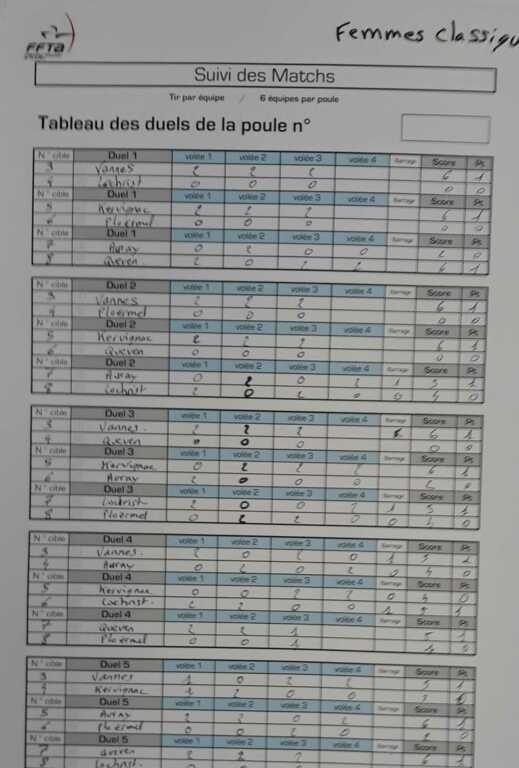 Femmes Classiqu
FFTA
Suivi des Matchs
Tir par équipe / 6 équipes par poule
Tableau des duels de la poule n°
N° cible Duel 1 volée 1 volée 2 volée 3 volée 4 Barrage Score Pt
3 Vannes 2 2 2 6 1
4 Lochrist 0 0 0 0 0
N° cible Duel 1 volée 1 volée 2 volée 3 volée 4 Barrage Score Pt
5 Kervignac 2 2 2 6 1
6 Ploermel 0 0 0 0 0
N° cible Duel 1 volée 1 volée 2 volée 3 volée 4 Barrage Score Pt
7 Auray 0 2 0 0 2 0
8 Queven 2 0 2 2 6 1
N° cible Duel 2 volée 1 volée 2 volée 3 volée 4 Barrage Score Pt
3 Vannes 2 2 2 6 1
4 Ploermel 0 0 0 0 0
N° cible Duel 2 volée 1 volée 2 volée 3 volée 4 Barrage Score Pt
5 Kervignac 2 2 2 6 1
6 Queven 0 0 0 0 0
N° cible Duel 2 volée 1 volée 2 volée 3 volée 4 Barrage Score Pt
7 Auray 0 2 0 2 1 5 1
8 Lochrist 2 0 2 0 0 4 0
N° cible Duel 3 volée 1 volée 2 volée 3 volée 4 Barrage Score Pt
3 Vannes. 2 2 2 6 1
4 Queven 0 0 0 0 0
N° cible Duel 3 volée 1 volée 2 volée 3 volée 4 Barrage Score Pt
5 Kervignac 0 2 2 2 6 1
6 Auray 2 0 0 0 2 0
N° cible Duel 3 volée 1 volée 2 volée 3 volée 4 Barrage Score Pt
7 Lochrist 2 0 0 2 1 5 1
8 Ploermel 0 2 2 0 0 4 0
N° cible Duel 4 volée 1 volée 2 volée 3 volée 4 Barrage Score Pt
3 Vannes. 2 0 2 0 1 5
4 Auray 0 2 0 2 0 4 0
N° cible Duel 4 volée 1 volée 2 volée 3 volée 4 Barrage Score Pt
5 Kervignac 0 0 2 2 0 4 0
6 Lochrist. 2 2 0 0 1 5 1
N° cible Duel 4 volée 1 volée 2 volée 3 volée 4 Barrage Score Pt
7 Queven 2 2 1 5 1
8 Ploermel 0 0 1 0
N° cible Duel 5 volée 1 volée 2 volée 3 volée 4 Barrage Score Pt
3 Vannes 1 0 2 2 5 1
Kervignac 1 2 0 0 3
N° cible Duel 5 volée 1 volée 2 volée 3 volée 4 Barrage Score Pt
5 Auray 2 2 0 2 6 1
6 Ploermel 0 0 2 0
N° cible Duel 5 volée 1 volée 2 volée 3 volée 4 Barrage Score Pt
7 Queven 2 2 2 6 1
8 Lochrist